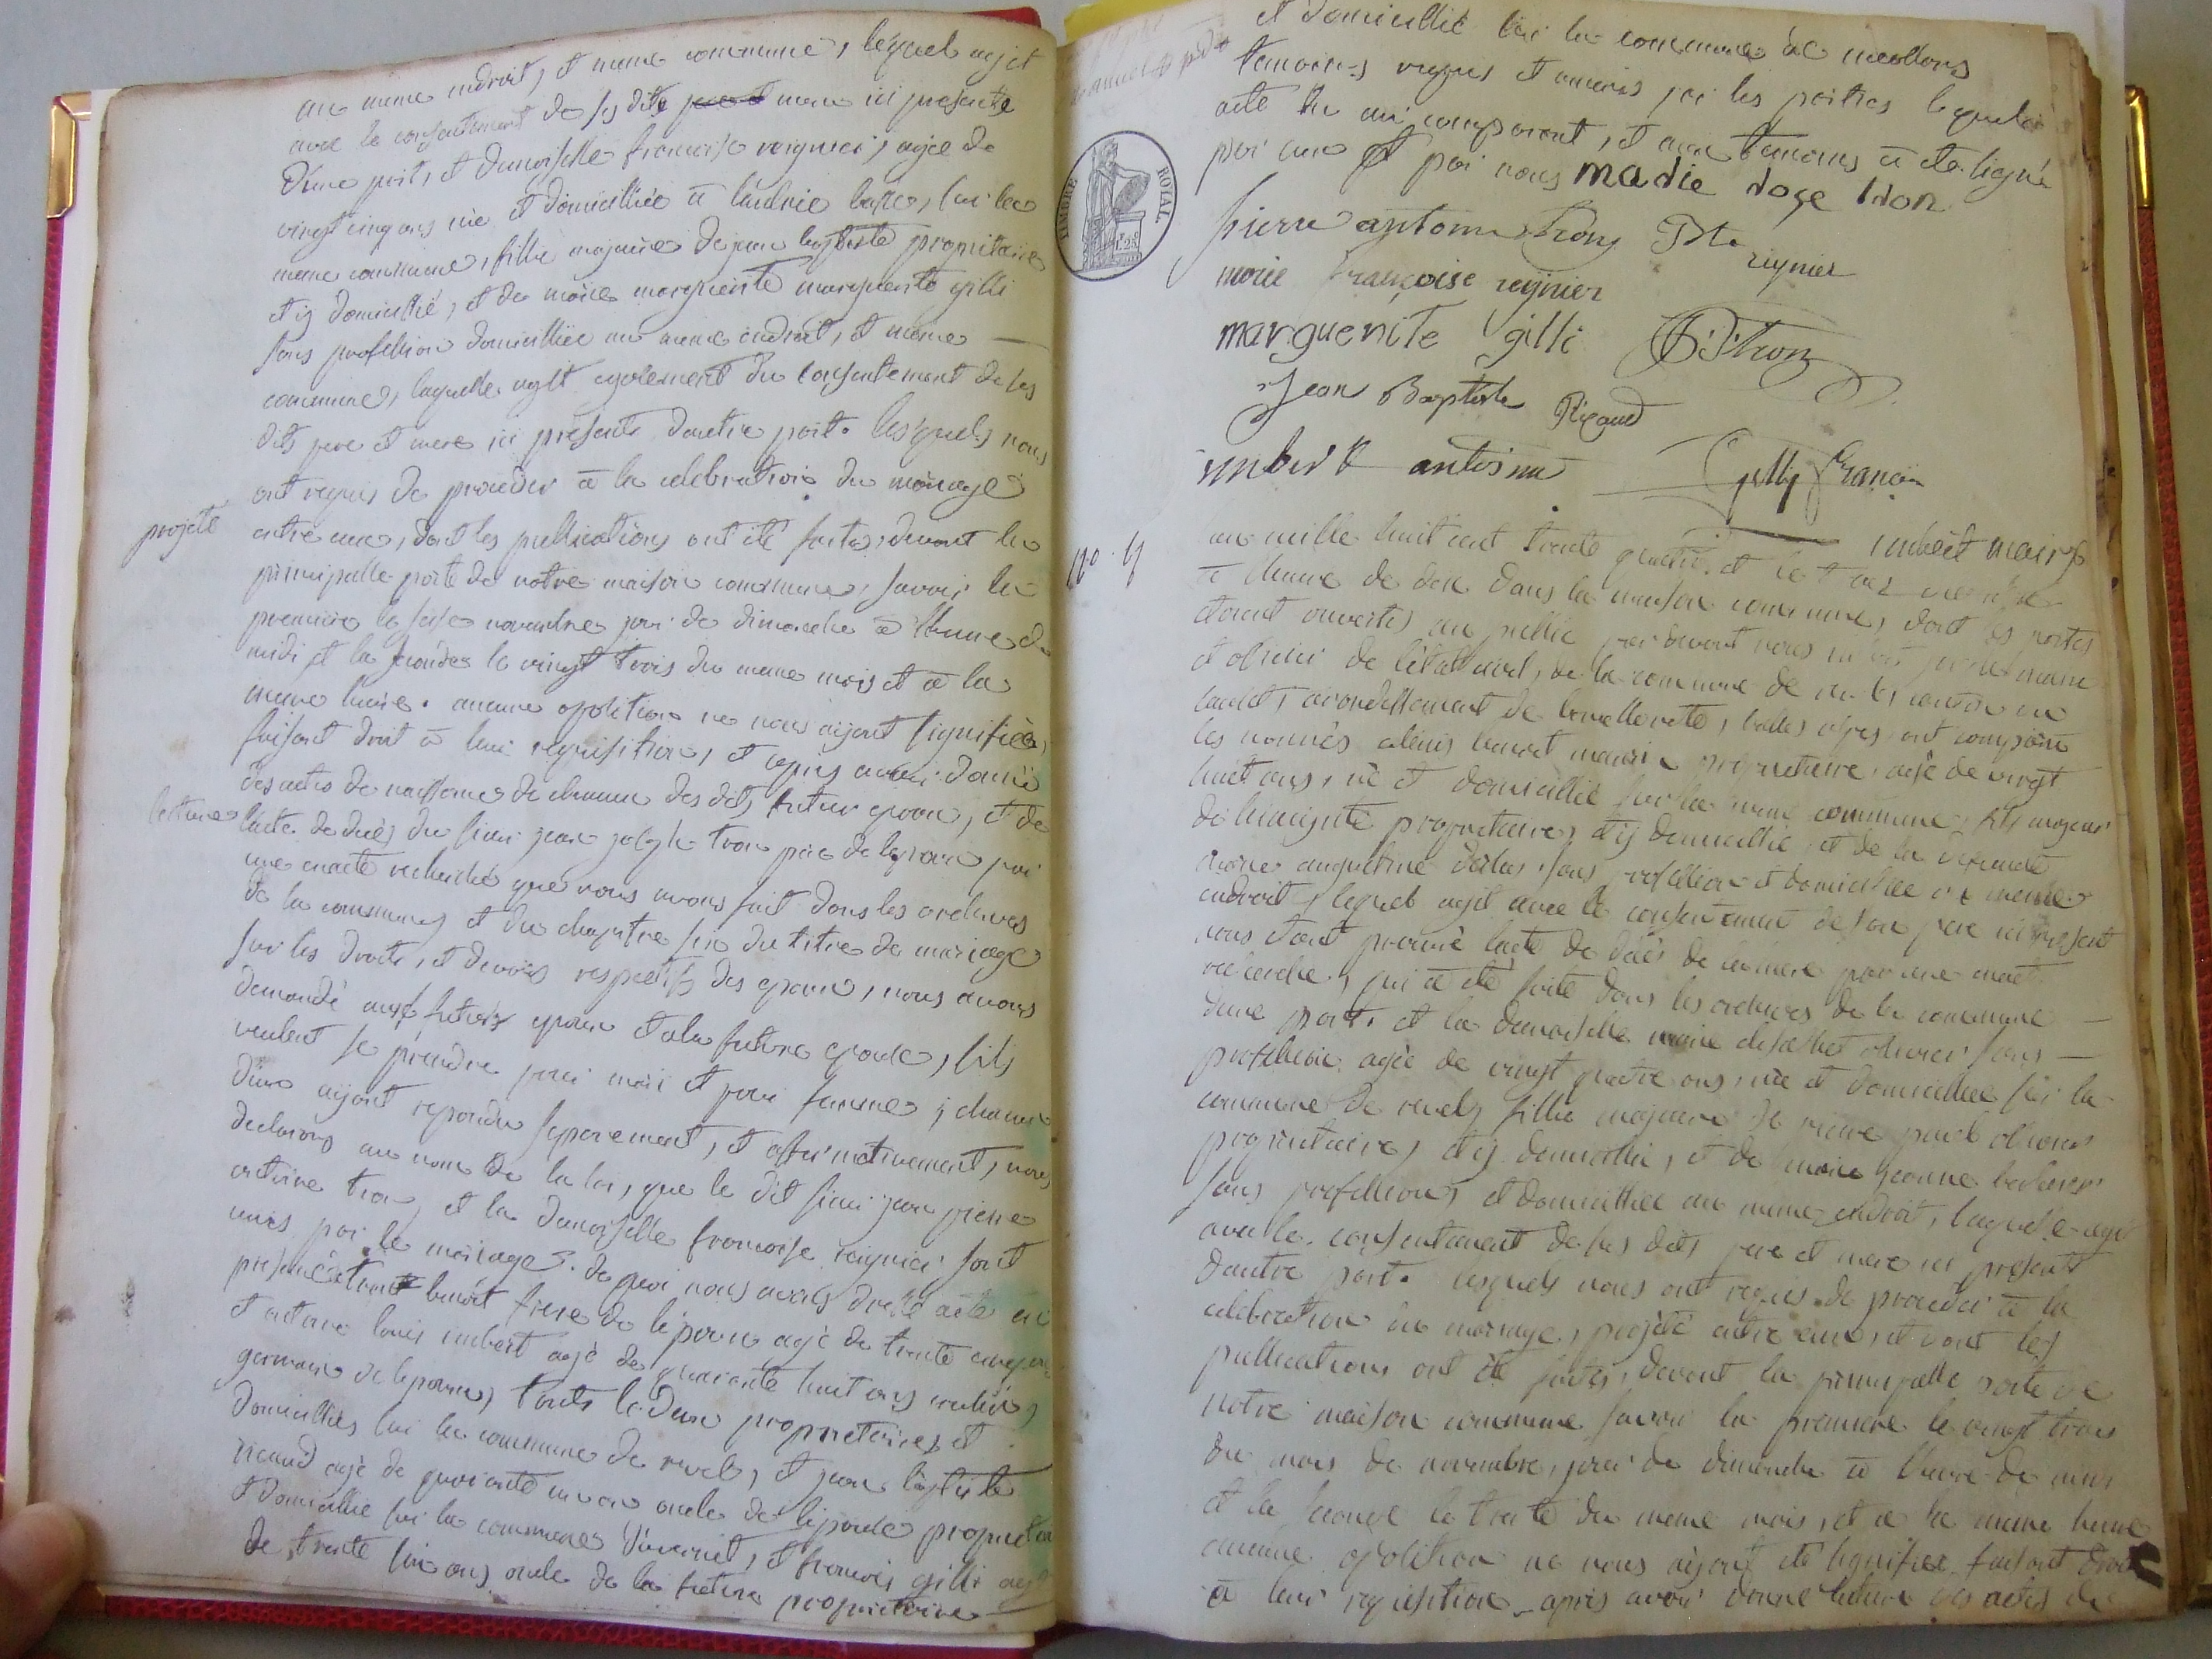 au meme endroit, et meme commune, lequel agit
avec le consentement de sa dite mere ici presente
d'une part, et demoiselle francoise reignier, agée de
vingt cinq ans née et domiciliée a basse, sur la
meme commune, fille majeure de jean baptiste propriétaire
et y domicilié, et de marie marguerite marguerite gilli
sans profession domiciliée au meme endroit, et meme
commune, laquelle agit egalement du consentement de ses
dits pere et mere ici présents d'autre part. lesquels nous
ont requis de proceder a la celebration du mariage
projeté
entre eux, dont les publications ont été faites, devant la
principalle porte de notre maison commune, savoir la
premiere le seise novembre jour de dimanche a l'heure de
midi et la seconde le vingt trois du meme mois et a la
meme heure. aucune oposition ne nous aijant signifiée,
faisant droit a leur requisition, et apres avoir donné
lecture
des actes de naissance de chacun des dits futur epoux, et de
l'acte de décés du sieur jean joseph tron pere de l'epoux par
une exacte recherche que nous avons fait dans les archives
de la commune et du chapitre six du titre de mariage
sur les droits, et devoirs respectifs des epoux, nous avons
demandé aux futurs epoux et a la future epouse, s'ils
veulent se prendre pour mari et pour femme, chacun
d'eux aijant repondu separement, et affirmativement, nous
declarons au nom de la loi, que le dit sieur jean pierre
antoine tron, et la demoiselle francoise reignier sont
unis par le mariage. de quoi nous avons dressé acte en
presence tron benoit frere de l'epoux agé de trente cinq ans
et antoine louis imbert agé de quarante huit ans cousin
germain de l'epoux, touts les deux propriétaires et
domiciliés sur la commune de revel, et jean baptiste
ricaud agé de quarante un ans oncle de l'epouse propriétaire
et domicilié sur la commune d'uvernet, et francois gilli agé
de trente six ans oncle de la future propriétaire
et domicillié sur la commune de meollans
temoins requis et amenés par les parties lequel
acte lu aux comparant, et aux temoins a eté signé
par eux et par nous marie rose tron
pierre antoine tron J Bte reynier
marie françoise reynier
marguerite gilli B Tron
Jean Baptiste Ricaud
imbert antoine Gilly François
imbert maire
no. 17
l'an mille huit cent trente quatre et le
a l'heure de dix dans la maison commune, dont les portes
étoient ouvertes au public par devant nous maire
et officier de l'état civil, de la commune de revel, canton du
lauzet, arrondissement de barcellonette, basses alpes, ont comparu
les nommés alexis maurin propriétaire, agé de vingt
huit ans, né et domicillié sur la meme commune, fils majeur
de propriétaire, et y domicillié, et de la defunte
marie sans profession et domiciliée au meme
endroit, lequel agit avec le consentement de son pere ici present
nous etant procuré l'acte de décés de la mere par une exacte
recherche, qui a eté faite dans les archives de la commune
d'une part. et la demoiselle marie elisabet olivier sans
profession agée de vingt quatre ans, née et domiciliée sur la
commune de revel, fille majeure de pierre paul olivier
propriétaire, et y domicillié, et de marie jeanne
sans profession, et domicilliée au meme endroit, laquelle agit
avec le consentement de ses dits pere et mere ici présents
d'autre part. lesquels nous ont requis de proceder a la
celebration du mariage, projeté entre eux, et dont les
publications ont été faites, devant la principalle porte de
notre maison commune savoir la premiere le vingt trois
du mois de novembre, jour de dimanche a l'heure de midi
et la seconde le trente du meme mois, et a la meme heure
aucune oposition ne nous aijant été signifiée faisant droit
a leur requisition apres avoir donné lecture des actes de
TIMBRE ROYAL
1 f. 25